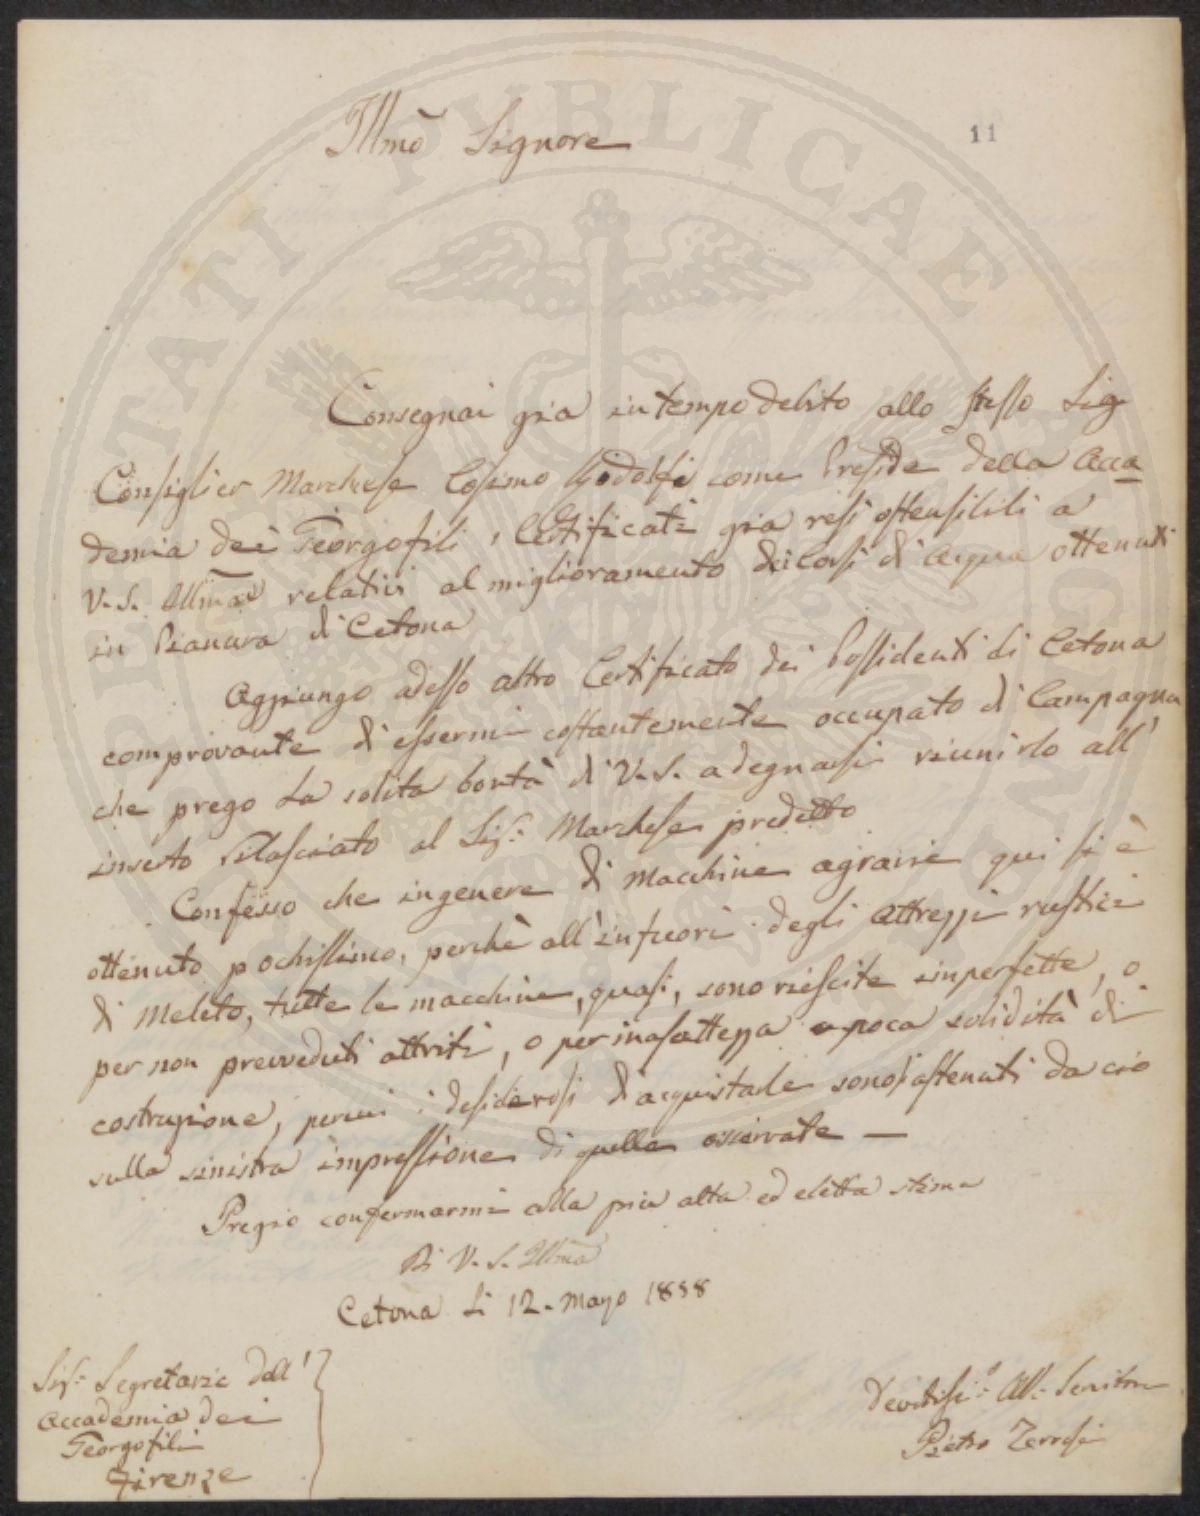 11
Illmo Signore
Consegnai già in tempo debito allo stesso Sig
Consiglier Marchese Cosimo Ridolfi come Preside della Acca
demia dei Georgofili i Certificati già resi ostensibili a
V. S. Illma relativi al miglioramento dei Corsi di Acqua ottenuti
in Pianura di Cetona
Aggiungo adesso altro Certificato dei Possidenti di Cetona
comprovante di essermi costantemente occupato di Campagna
che prego la solita bontà di V. S. a degnarsi riunirlo all'
inserto rilasciato al Sig: Marchese predetto
Confesso che in genere di macchine agrarie qui si è
ottenuto pochissimo, perchè all'infuori degli Attrezzi rustici
di Meleto, tutte le macchine, quasi, sono riescite imperfette, o
per non preveduti attriti, o per inesattezza o poca solidità di
costruzione, percui i desiderosi di acquistarle sonosi astenuti da ciò
sulla sinistra impressione di quelle osservate —
Pregio confermarmi alla più alta ed eletta stima
Di V. S. Illma
Cetona Li 12. Maggio 1858
Sig: Segretario dell'
Accademia dei
Georgofili
Firenze
Servitore
Pietro Terrosi